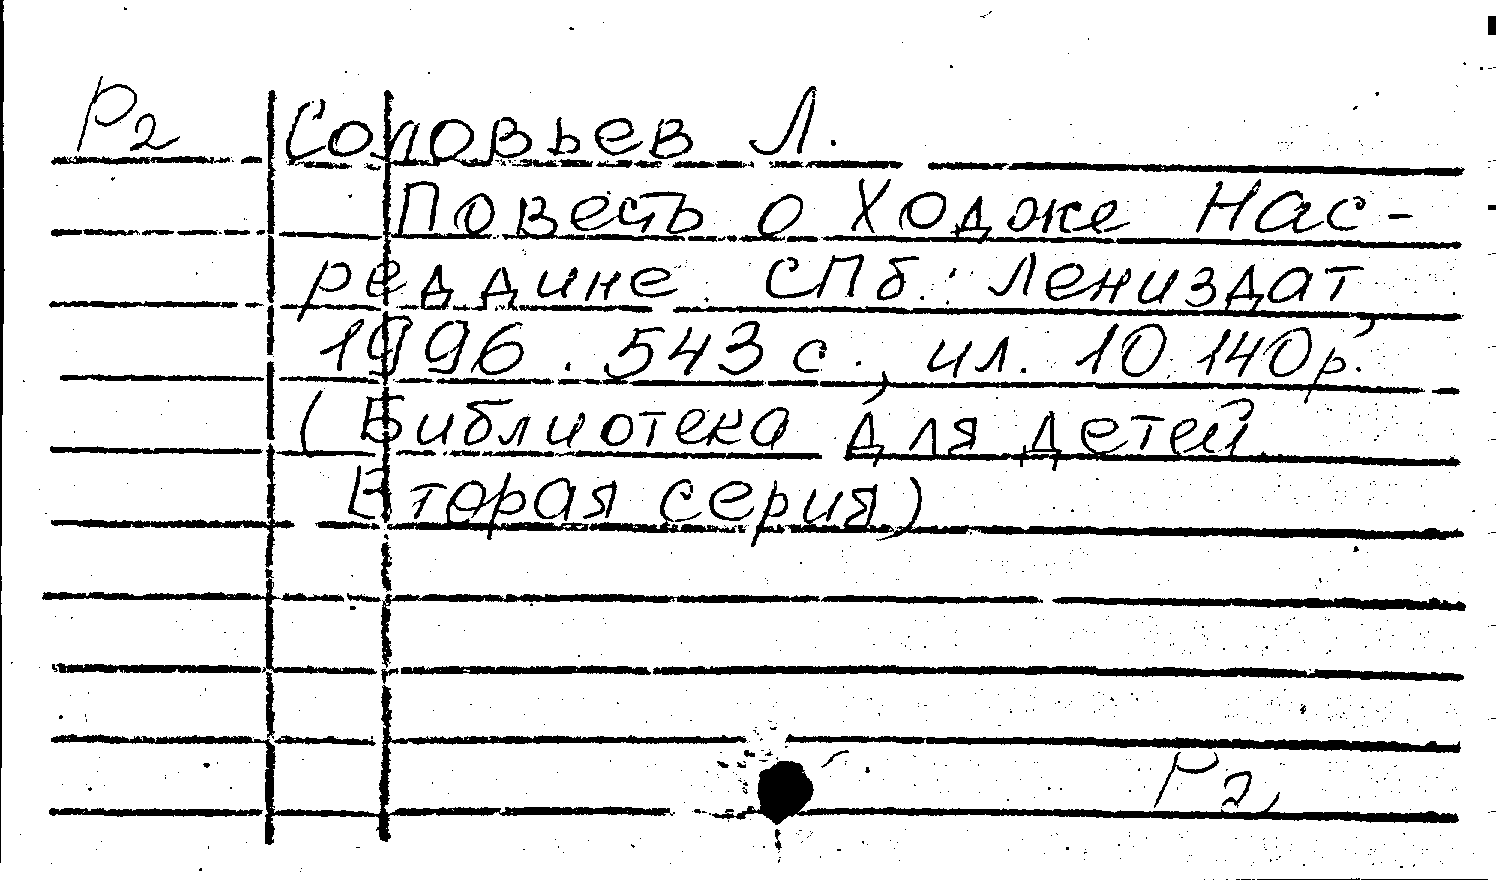 Р2 Соловьев Л.
Повесть о Ходже Нас-
реддине. СПб.: Лениздат,
1996. 543 с., ил. 10 140р.
(Библиотека для детей.
Вторая серия)
Р2